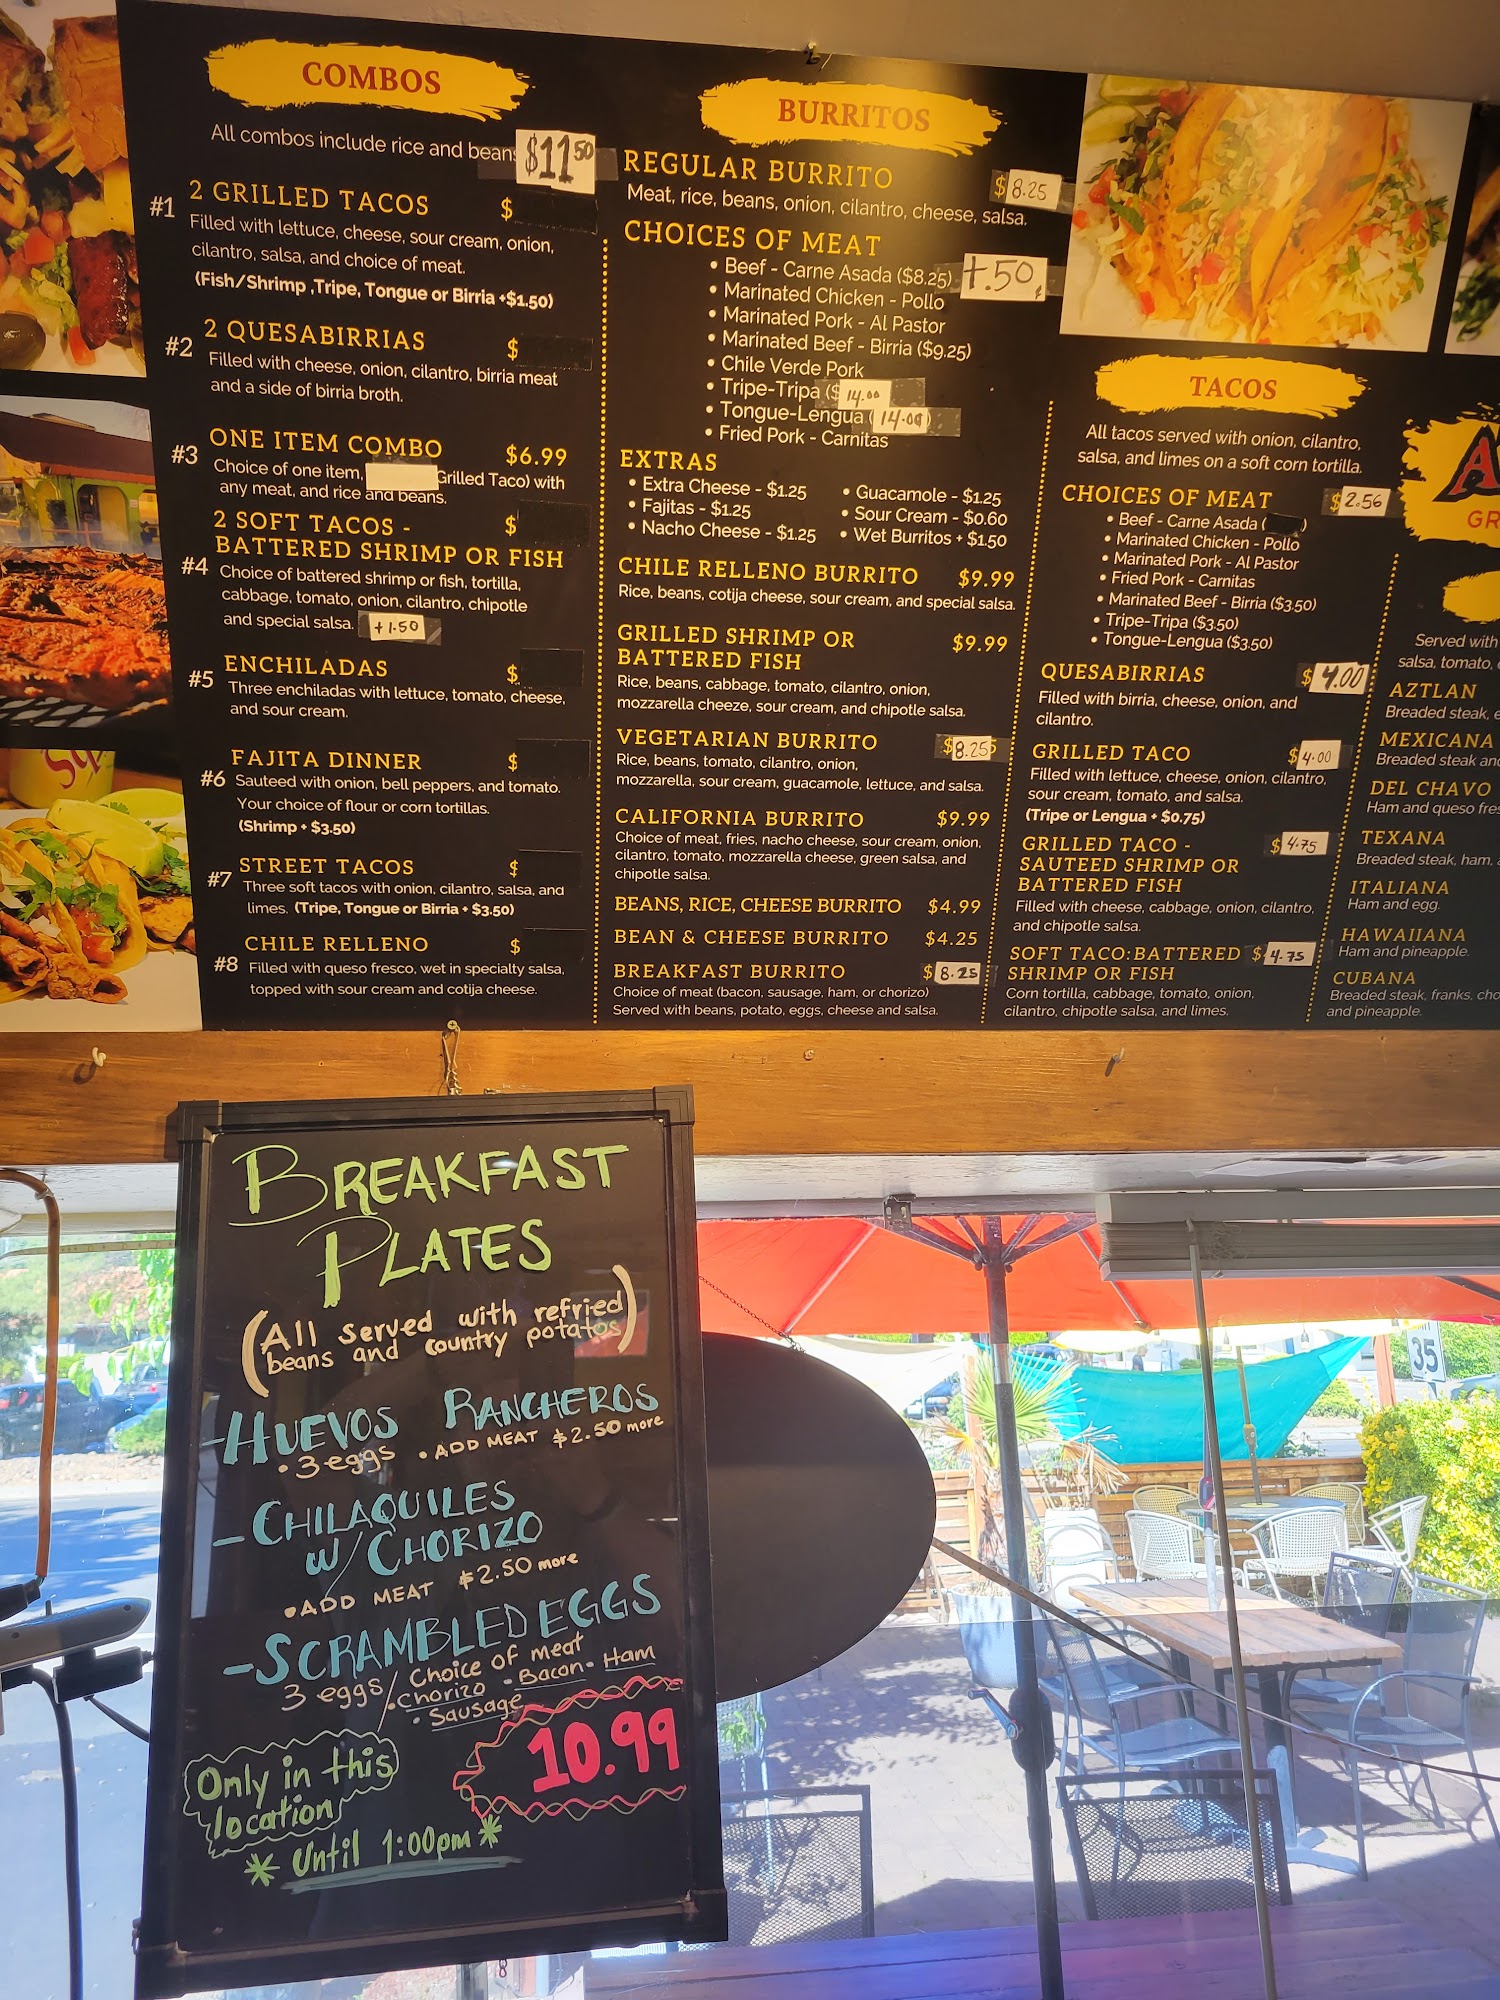 COMBOS
All combos include rice and beans
$11.50
#1 2 GRILLED TACOS $
Filled with lettuce, cheese, sour cream, onion,
cilantro, salsa, and choice of meat.
(Fish/Shrimp ,Tripe, Tongue or Birria +$1.50)
#2 2 QUESABIRRIAS $
Filled with cheese, onion, cilantro, birria meat
and a side of birria broth.
#3 ONE ITEM COMBO $6.99
Choice of one item, Grilled Taco) with
any meat, and rice and beans.
#4 2 SOFT TACOS - $
BATTERED SHRIMP OR FISH
Choice of battered shrimp or fish, tortilla,
cabbage, tomato, onion, cilantro, chipotle
and special salsa. +1.50
#5 ENCHILADAS $
Three enchiladas with lettuce, tomato, cheese,
and sour cream.
#6 FAJITA DINNER $
Sauteed with onion, bell peppers, and tomato.
Your choice of flour or corn tortillas.
(Shrimp + $3.50)
#7 STREET TACOS $
Three soft tacos with onion, cilantro, salsa, and
limes. (Tripe, Tongue or Birria + $3.50)
#8 CHILE RELLENO $
Filled with queso fresco, wet in specialty salsa,
topped with sour cream and cotija cheese.
BURRITOS
REGULAR BURRITO $8.25
Meat, rice, beans, onion, cilantro, cheese, salsa.
CHOICES OF MEAT
• Beef - Carne Asada ($8.25) +.50¢
• Marinated Chicken - Pollo
• Marinated Pork - Al Pastor
• Marinated Beef - Birria ($9.25)
• Chile Verde Pork
• Tripe-Tripa ($14.00
• Tongue-Lengua (14.00)
• Fried Pork - Carnitas
EXTRAS
• Extra Cheese - $1.25
• Fajitas - $1.25
• Nacho Cheese - $1.25
• Guacamole - $1.25
• Sour Cream - $0.60
• Wet Burritos + $1.50
CHILE RELLENO BURRITO $9.99
Rice, beans, cotija cheese, sour cream, and special salsa.
GRILLED SHRIMP OR $9.99
BATTERED FISH
Rice, beans, cabbage, tomato, cilantro, onion,
mozzarella cheeze, sour cream, and chipotle salsa.
VEGETARIAN BURRITO $8.25
Rice, beans, tomato, cilantro, onion,
mozzarella, sour cream, guacamole, lettuce, and salsa.
CALIFORNIA BURRITO $9.99
Choice of meat, fries, nacho cheese, sour cream, onion,
cilantro, tomato, mozzarella cheese, green salsa, and
chipotle salsa.
BEANS, RICE, CHEESE BURRITO $4.99
BEAN & CHEESE BURRITO $4.25
BREAKFAST BURRITO $8.25
Choice of meat (bacon, sausage, ham, or chorizo)
Served with beans, potato, eggs, cheese and salsa.
TACOS
All tacos served with onion, cilantro,
salsa, and limes on a soft corn tortilla.
CHOICES OF MEAT $2.56
• Beef - Carne Asada ( )
• Marinated Chicken - Pollo
• Marinated Pork - Al Pastor
• Fried Pork - Carnitas
• Marinated Beef - Birria ($3.50)
• Tripe-Tripa ($3.50)
• Tongue-Lengua ($3.50)
QUESABIRRIAS $4.00
Filled with birria, cheese, onion, and
cilantro.
GRILLED TACO $4.00
Filled with lettuce, cheese, onion, cilantro,
sour cream, tomato, and salsa.
(Tripe or Lengua + $0.75)
GRILLED TACO - $4.75
SAUTEED SHRIMP OR
BATTERED FISH
Filled with cheese, cabbage, onion, cilantro,
and chipotle salsa.
SOFT TACO: BATTERED $4.75
SHRIMP OR FISH
Corn tortilla, cabbage, tomato, onion,
cilantro, chipotle salsa, and limes.
GR
Served with
salsa, tomato,
AZTLAN
Breaded steak,
MEXICANA
Breaded steak and
DEL CHAVO
Ham and queso
TEXANA
Breaded steak, ham,
ITALIANA
Ham and egg.
HAWAIIANA
Ham and pineapple.
CUBANA
Breaded steak, franks,
and pineapple.
BREAKFAST
PLATES
(All served with refried
beans and country potatos)
-HUEVOS RANCHEROS
• 3 eggs • ADD MEAT $2.50 more
- CHILAQUILES
w/ CHORIZO
• ADD MEAT $2.50 more
-SCRAMBLED EGGS
3 eggs/ Choice of meat
• Chorizo • Bacon • Ham
• Sausage
10.99
Only in this
location
* Until 1:00pm *
35